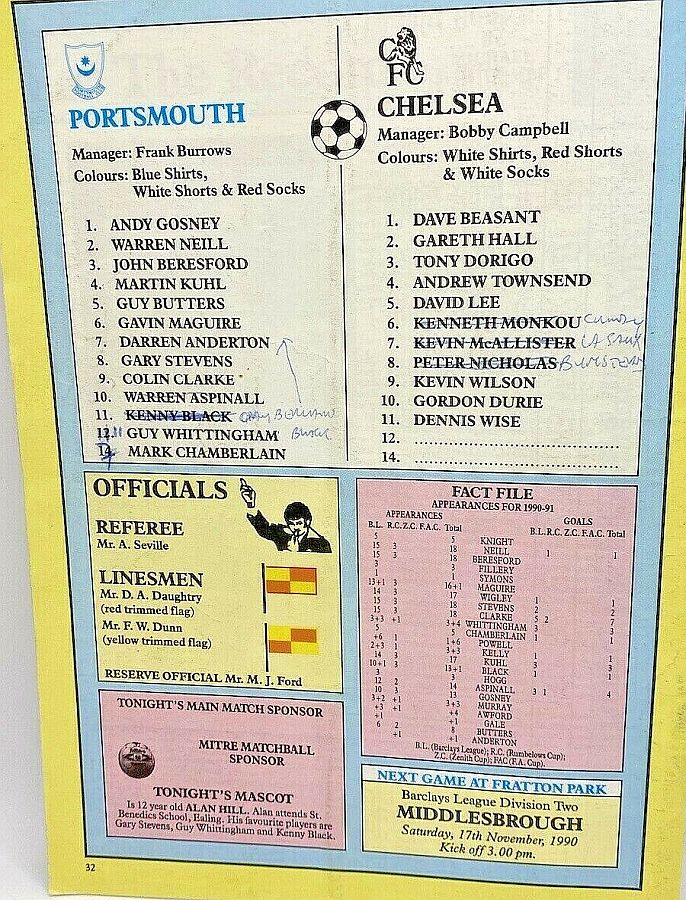 PORTSMOUTH
Manager: Frank Burrows
Colours: Blue Shirts,
White Shorts & Red Socks
1. ANDY GOSNEY
2. WARREN NEILL
3. JOHN BERESFORD
4. MARTIN KUHL
5. GUY BUTTERS
6. GAVIN MAGUIRE
7. DARREN ANDERTON
8. GARY STEVENS
9. COLIN CLARKE
10. WARREN ASPINALL
11. KENNY BLACK
12. GUY WHITTINGHAM
14. MARK CHAMBERLAIN
CFC
CHELSEA
Manager: Bobby Campbell
Colours: White Shirts, Red Shorts
& White Socks
1. DAVE BEASANT
2. GARETH HALL
3. TONY DORIGO
4. ANDREW TOWNSEND
5. DAVID LEE
6. KENNETH MONKOU
7. KEVIN McALLISTER
8. PETER NICHOLAS
9. KEVIN WILSON
10. GORDON DURIE
11. DENNIS WISE
12.
14.
OFFICIALS
REFEREE
Mr. A. Seville
LINESMEN
Mr. D. A. Daughtry
(red trimmed flag)
Mr. F. W. Dunn
(yellow trimmed flag)
RESERVE OFFICIAL Mr. M. J. Ford
TONIGHT'S MAIN MATCH SPONSOR
MITRE MATCHBALL
SPONSOR
TONIGHT'S MASCOT
Is 12 year old ALAN HILL. Alan attends St.
Benedics School, Ealing. His favourite players are
Gary Stevens, Guy Whittingham and Kenny Black.
FACT FILE
APPEARANCES FOR 1990-91
APPEARANCES GOALS
B.L. R.C. Z.C. F.A.C. Total B.L. R.C. Z.C. F.A.C. Total
5 5 KNIGHT
15 3 18 NEILL 1 1
15 3 18 BERESFORD
3 3 FILLERY
1 1 SYMONS
13+1 3 16+1 MAGUIRE
14 3 17 WIGLEY 1 1
15 3 18 STEVENS 2 2
15 3 18 CLARKE 5 2 7
3+3 +1 3+4 WHITTINGHAM 3 3
5 5 CHAMBERLAIN 1 1
+6 1 1+6 POWELL
2+3 1 3+3 KELLY 1 1
14 3 17 KUHL 3 3
10+1 3 13+1 BLACK 1 1
3 3 HOGG
12 2 14 ASPINALL 3 1 4
10 3 13 GOSNEY
3+2 +1 3+3 MURRAY
+3 +1 +4 AWFORD
+1 +1 GALE
6 2 8 BUTTERS
+1 +1 ANDERTON
B.L. (Barclays League); R.C. (Rumbelows Cup);
Z.C. (Zenith Cup); FAC (F.A. Cup).
NEXT GAME AT FRATTON PARK
Barclays League Division Two
MIDDLESBROUGH
Saturday, 17th November, 1990
Kick off 3.00 pm.
32